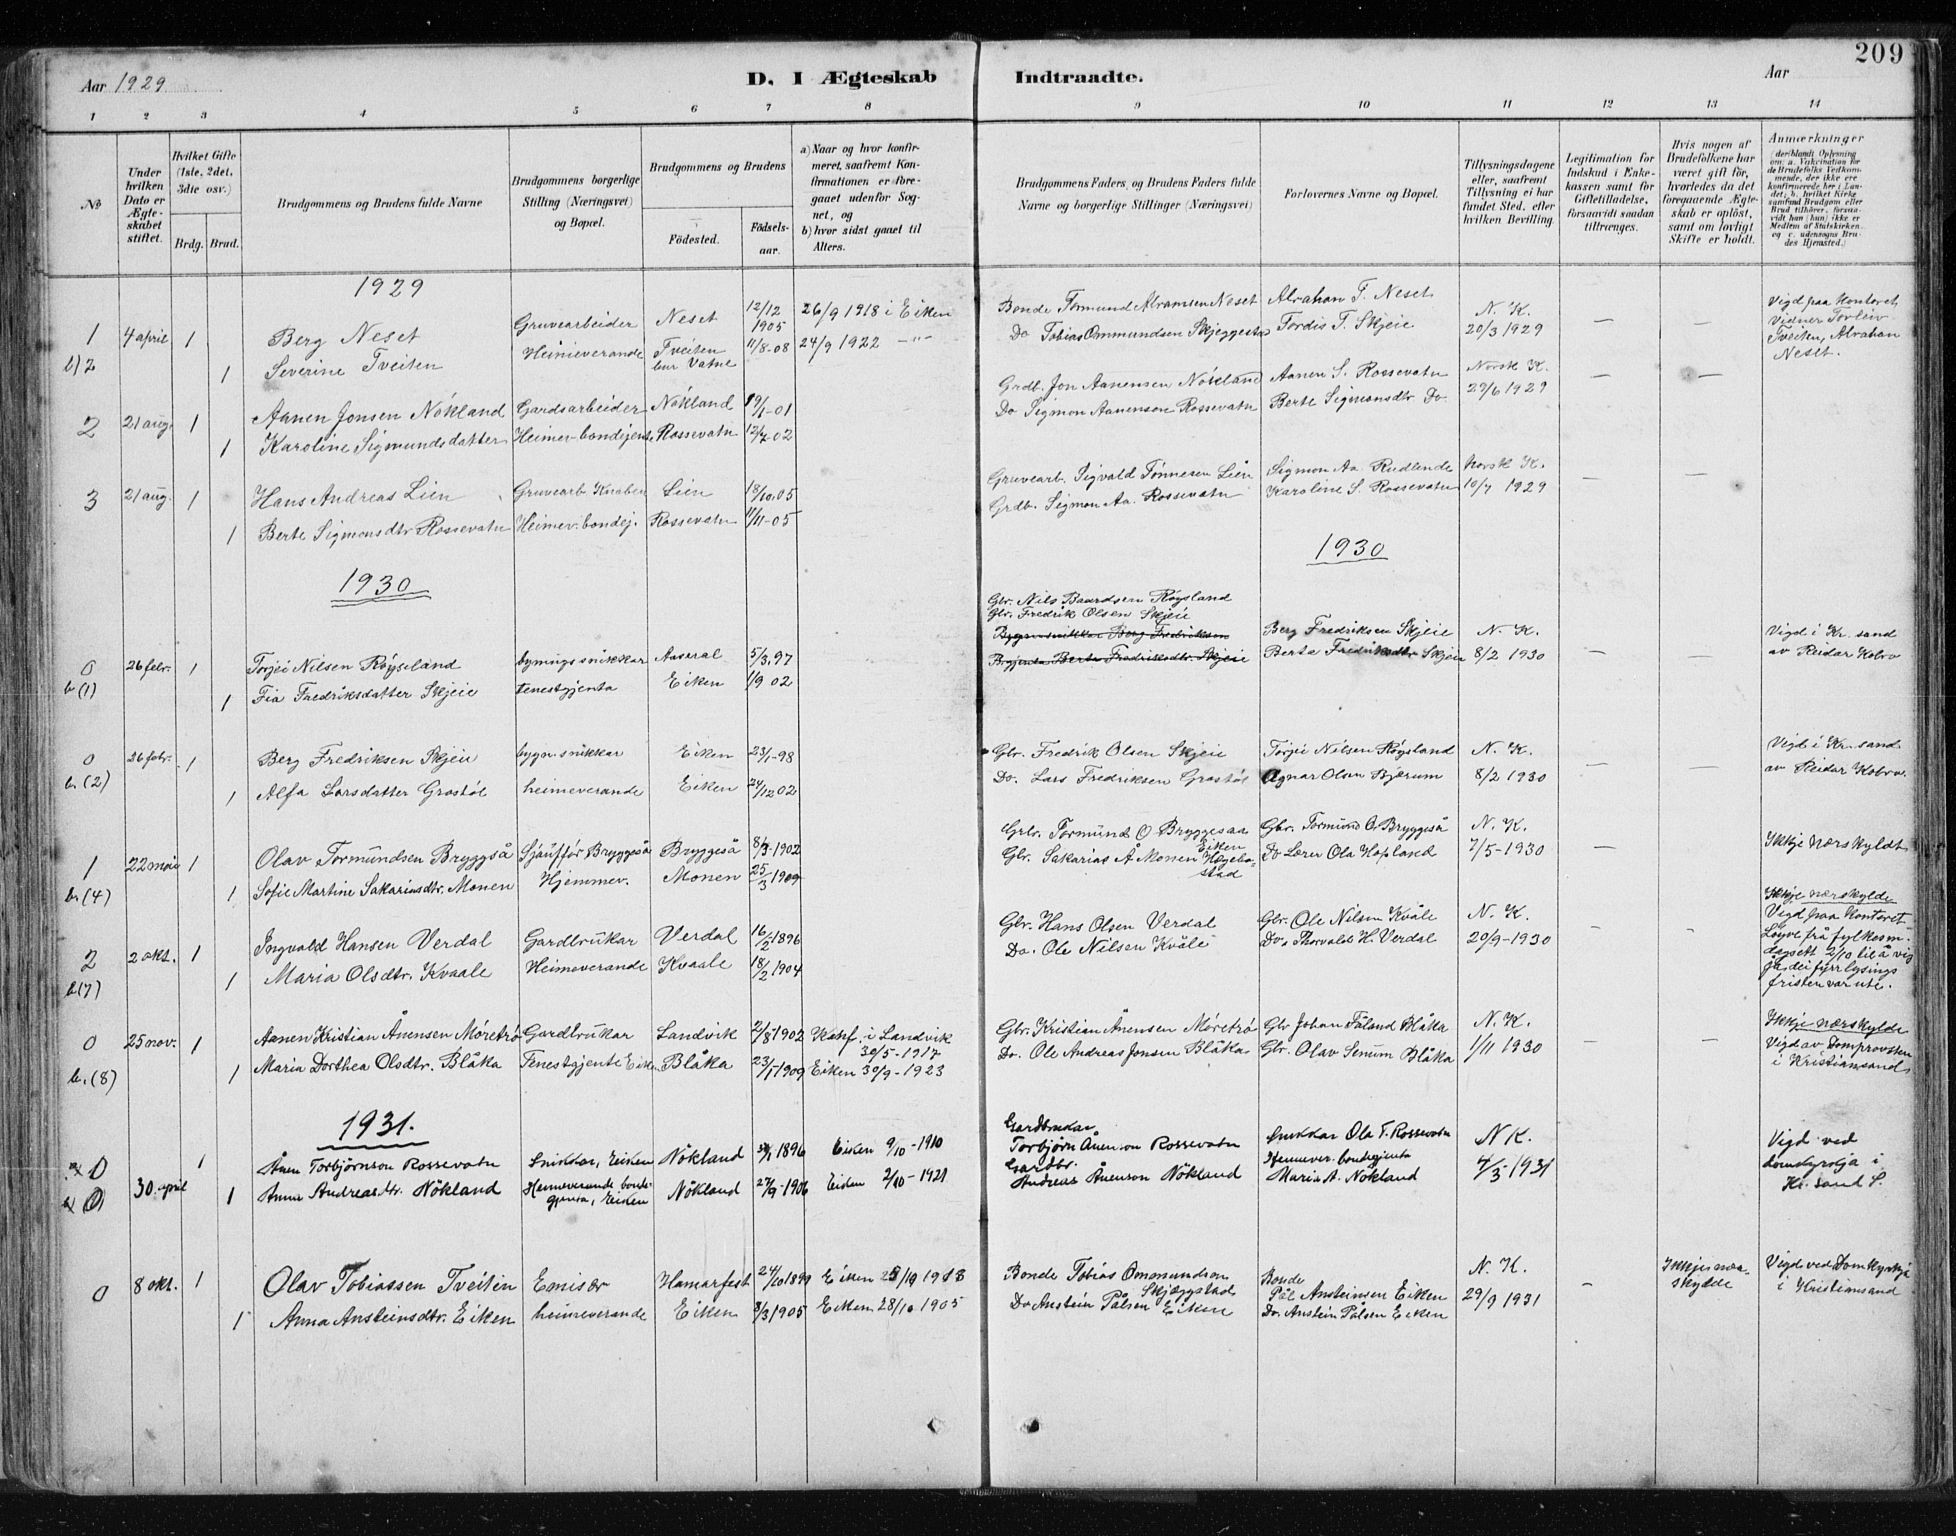 209
Aar 1929
D. I Ægteskab Indtraadte.
Aar
1 2 3 4 5 6 7 8 9 10 11 12 13 14
№
Under hvilken Dato er Ægteskabet stiftet.
Hvilket Gifte (1ste, 2det, 3die osv.)
Brdg. Brud.
Brudgommens og Brudens fulde Navne
Brudgommens borgerlige Stilling (Næringsvei) og Bopæl.
Brudgommens og Brudens
Fødested.
Fødselsaar.
a) Naar og hvor konfirmeret, saafremt Konfirmationen er foregaaet udenfor Sognet, og
b) hvor sidst gaaet til Alters.
Brudgommens Faders, og Brudens Faders fulde Navne og borgerlige Stillinger (Næringsvei)
Forlovernes Navne og Bopæl.
Tillysningsdagene eller, saafremt Tillysning ei har fundet Sted, efter hvilken Bevilling
Legitimation for Indskud i Enkekassen samt for Giftetilladelse, forsaavidt saadan tiltrænges.
Hvis nogen af Brudefolkene har været gift før, hvorledes da det foregaaende Ægteskab er opløst, samt om lovligt Skifte er holdt.
Anmærkninger
(deriblandt Oplysning om: a. Vakcination for de Brudefolks Vedkommende, der ikke ere konfirmerede her i Landet, b. hvilket Kirkesamfund Brudgom eller Brud tilhører, forsaavidt han (hun) ikke er Medlem af Statskirken, og c. udensogns Brudes Hjemsted.)
1929
1 4 april 1 Berg Neset Gruvearbeider Neset 12/12 1905 26/9 1918 i Eiken Bonde Tormund Abramsen Neset Abrahan T. Neset N. K. 20/3 1929 — — Vigd paa Kontoret
b) 2 1 Severine Tveiten Heimeverande Tveiten bur Vatne 11/8-08 24/9 1922 —"— Do Tobias Ommundsen Skjeggestad Tordis T. Skjeie Vidner Torleiv Tveiten, Abrahan Neset.
2 21 aug. 1 Aanen Jonsen Nökland Gardsarbeider Nökland 19/1-01 Grdb. Jon Aanensen Nökland Aanen S. Rossevatn Norsk K. 29/6 1929 — —
1 Karoline Sigmundsdatter Heimev-bondejente Rossevatn 12/7-02 Do Sigmon Aanenson Rossevatn Berte Sigmonsdtr Do
3 21 aug. 1 Hans Andreas Lien Gruvearb Knaben Lien 18/10.05 Gruvearb. Sigvald Tönnesen Lien Sigmon Aa. Rudlende Norsk K. 10/7 1929 — —
1 Berte Sigmonsdtr Rossevatn Heimev. bondej. Rossevatn 11/11-05 Grdb. Sigmon Aa. Rossevatn Karoline S. Rossevatn
1930
1930
0 26 febr. 1 Torjei Nilsen Röyseland bygnings snikkar Aaseral 5/3.97 Gbr. Nils Baardsen Röysland Berg Fredriksen Skjeie N. K. 8/2 1930 — Vigd i Kr. sand
b. (1) 1 Fia Fredriksdatter Skjeie tenestgjenta Eiken 1/9 02 Gbr. Fredrik Olsen Skjeie Berta Fredriksdtr Skjeie av Reidar Kobro
Bygn.snikkar Berg Fredriksen
Bygjenta Berta Fredriksdtr. Skjeie
0 26 febr. 1 Berg Fredriksen Skjeie bygn. snikkar Eiken 23/1-98 Gbr. Fredrik Olsen Skjeie Torjei Nilsen Röysland N. K. 8/2 1930 — — Vigd i Kr. sand
b. (2) 1 Alfa Larsdatter Grostöl heimeverande Eiken 24/12 02 Do. Lars Fredriksen Grostöl Agnar Olsen Bjærum av Reidar Kobro
1 22 mai 1 Olav Tormundsen Bryggså Sjåufför Bryggeså Bryggeså 8/3-1902 Grbr. Tormund O Bryggesaa Eiken Gbr. Tormund O. Bryggeså N. K. 7/5-1930 — Ikkje nærskyldt
b. (4) 1 Sofie Martine Sakariasdtr. Monen Hjemmev. Monen 25/3 1909 Gbr. Sakarias Å Monen Hægebostad Do Lærer Ola Hopland
2 2 okt. 1 Ingvald Hansen Verdal Gardbrukar Verdal 16/2 1896 Gbr. Hans Olsen Verdal Gbr. Ole Nilsen Kvåle N. K. 20/9-1930 - - Ikkje nærskylde
b (7) 1 Maria Olsdtr. Kvaale Heimeverande Kvaale 18/2 1904 Do. Ole Nilsen Kvåle Do. Thorvald H. Verdal Vigd paa Kontoret Löyve frå fylkesm. dagsett 2/10 til å vigja, dei fyrr lysings fristen var ute.
0 25 nov. 1 Aanen Kristian Ånensen Möretrö Gardbrukar Landvik 2/8-1902 Konf. i Landvik 30/5-1917 Gbr. Kristian Ånensen Möretrö Gbr Johan Tåland Blåka N. K. 1/11 1930 - - Ikkje nærskylde
b. (8) 1 Maria Dorthea Olsdtr. Blåka Tenestgjente Eiken Blåka 23/1-1909 Eiken 30/9-1923 Do. Ole Andreas Jonsen Blåka Gbr. Olav Senum Blåka Vigd av Domprovsten i Kristiansand
1931.
0 30. april 1 Ånen Torbjörnson Rossevatn Snikkar, Eiken Nökland 1896 Eiken 9/10-1910 Gardbrukar Torbjörn Ånenson Rossevatn Snikkar Ola T. Rossevatn N K. 4/3-1931 Vigd ved
b (0) 1 Anna Andreasdtr. Nökland Heimeverande bondegjenta, Eiken Nökland 27/9-1906 Eiken 2/10-1921 Gardbr. Andreas Ånenson Nökland Hennever. bondegjenta Maria A. Nökland domkyrkja i Kr. sand S.
0 8 okt. 1 Olav Tobiassen Tveiten Emisær Hamarfest 24/10 1899 Eiken 1913 Bonde Tobias Ommundson Skjæggstad Bonde Pål Ansteinsen Eiken N. K. 29/9 1931 - Ikkje nærskylde Vigd ved Domkyrkja
1 Anna Ansteinsdtr. Eiken heimeverande Eiken 3/3 1905 Eiken 28/10 1905 Do Anstein Pålsen Eiken Do. Anstein Pålsen Eiken i Kristiansand